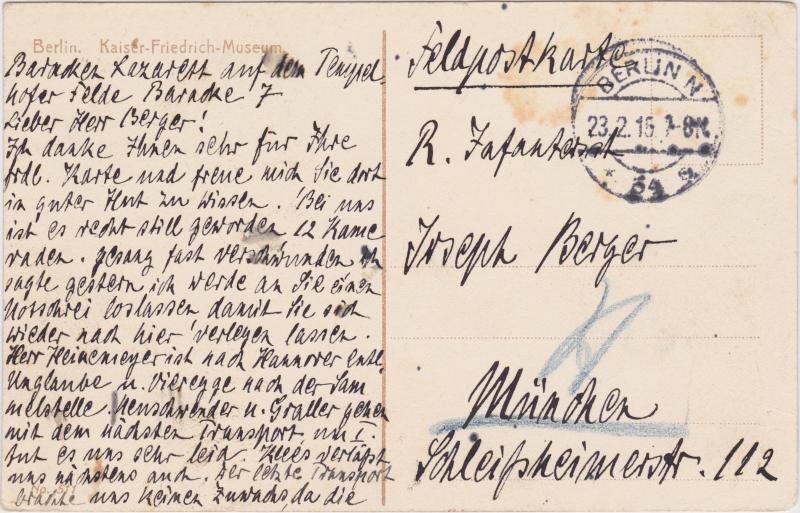 Berlin. Kaiser-Friedrich-Museum.
Baracken Lazarett auf dem Tempel-
hofer Felde Baracke 7
Lieber Herr Berger!
Ich danke Ihnen sehr für Ihre
frdl. Karte und freue mich Sie dort
in guter Hut zu wissen. Bei uns
ist es recht still geworden 12 Kame
raden. gesang fast verschwunden ich
sagte gestern ich werde an Sie einen
Notschrei loslassen damit Sie sich
wieder nach hier verlegen lassen.
Herr Heinemeyer ist nach Hannover entl.
Unglaube u. Vieregge nach der Sam
melstelle. Neuschwender u. Graller gehen
mit dem nächsten Transport, um I.
tut es uns sehr leid. Klees verlässt
uns nächstens auch. Der letzte Transport
brachte uns keinen Zuwachs, da die
Feldpostkarte
R. Infanterist
Joseph Berger
München
Schleißheimerstr. 112
BERLIN N
23.2.15. 7-8N.
* 54 a